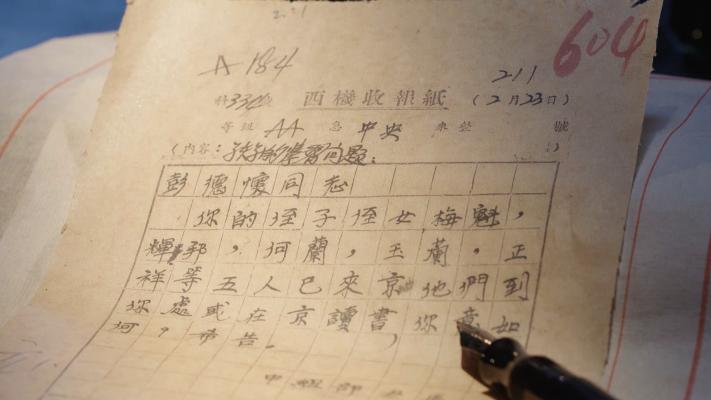 604
A 184
211
西機收報紙 (2月23日)
等級 AA 急 中央 來 號
(內容:孩子的學習问題。)
彭德懷同志
你的侄子侄女梅魁,
輝邦,何蘭,玉蘭,正
祥等五人已來京他們到
你處或在京讀書,你意如
何,希告。